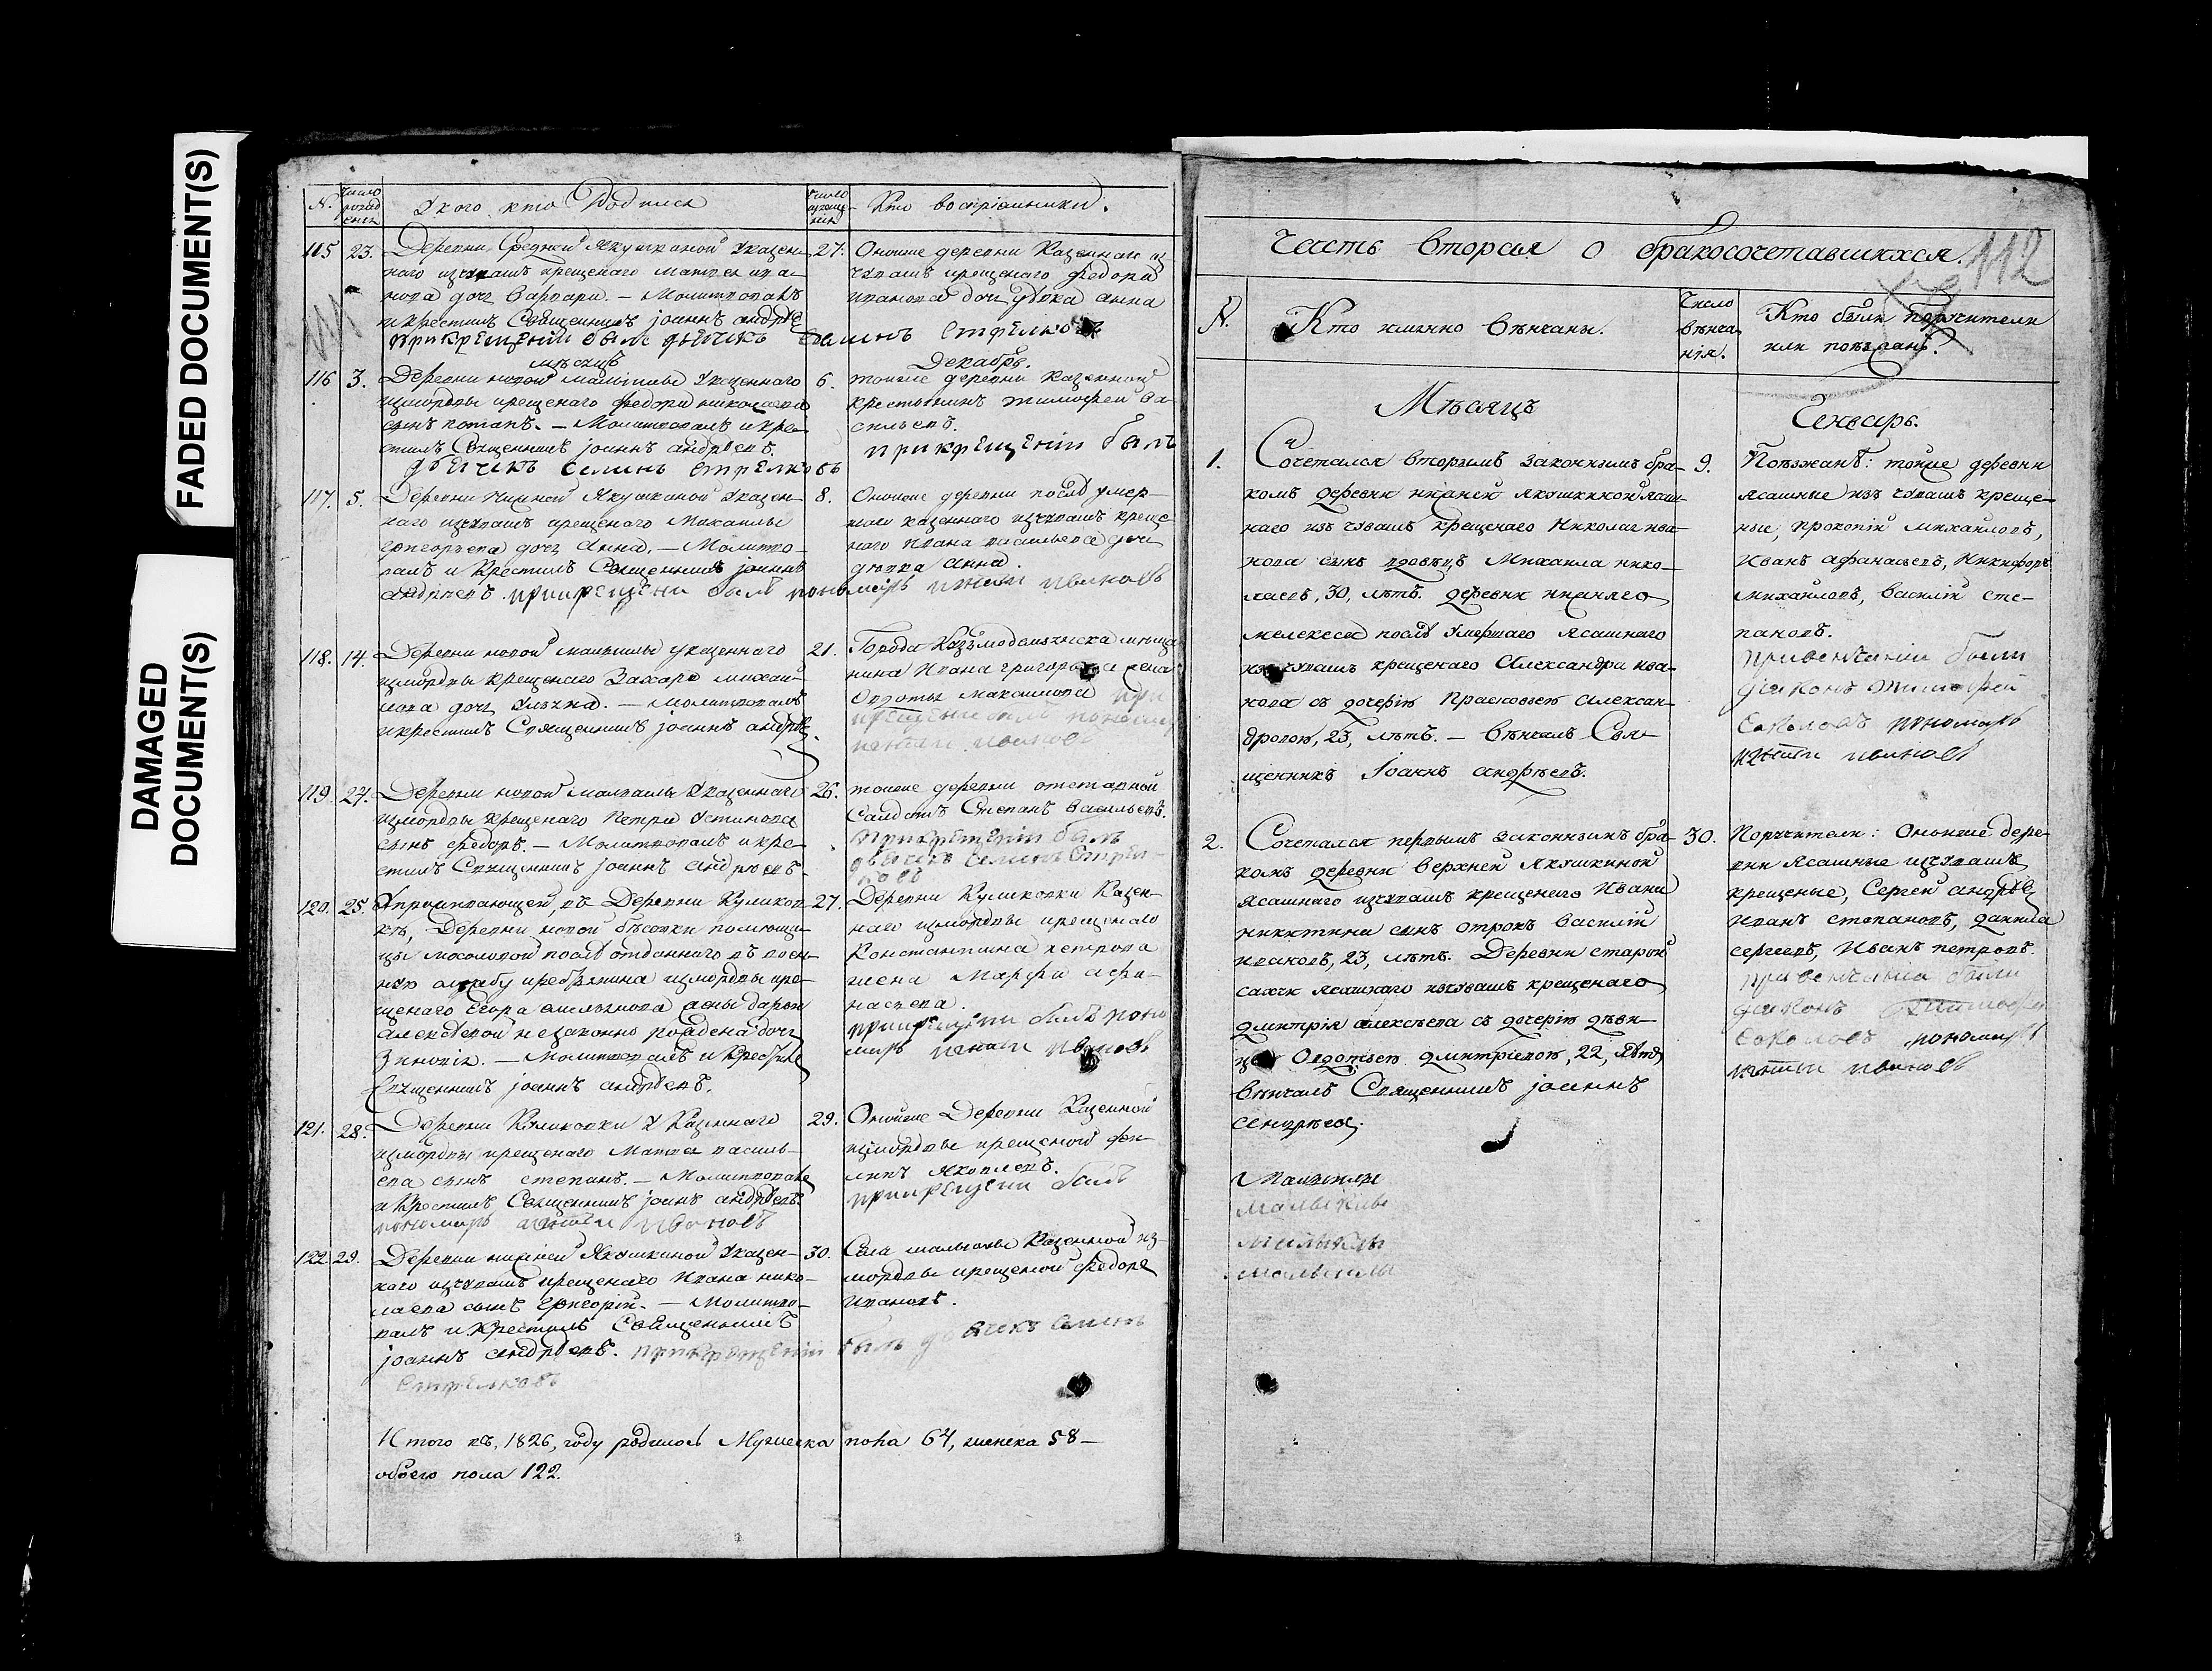 FADED DOCUMENT(S)
DAMAGED
DOCUMENT(S)
N. число рожде нія
У кого кто Родился
число креще нія
Кто воспріемники.
115 23. Деревни Средней Якушкиной Указен-
наго изчувашъ крещенаго Матвея ива-
нова дочь Варвара. — Молитвовалъ
и крестилъ Священникъ Іоаннъ андрѣе
прикрещеніи былъ дьячекъ Семенъ Стрелковъ
27. Оноиже деревни Казеннаго из
чувашъ крещенаго Федора
иванова дочь дѣвка анна
111
мѣсяцъ Декабрь.
116 3. Деревни новой малыклы Указеннаго
измордвы крещенаго Федора николаева
сынъ потапъ. — Молитвовалъ и кре-
стилъ Священникъ Іоаннъ андрѣевъ.
6. тоиже деревни казенной
крестьянинъ тимофей ва-
сильевъ.
прикрещеніи былъ
дьячекъ Семенъ стрелковъ
117. 5. Деревни Нижней Якушкиной Указен-
наго изчувашъ крещенаго Михаилы
григорьева дочь Анна. — Молитво-
валъ и Крестилъ Священникъ Іоаннъ
андрѣевъ. прикрещени былъ пономарь игнати ивановъ
8. Оноиже деревни послѣ умер-
шаго казеннаго изчувашъ креще-
наго Ивана васильева дочь
дѣвка Анна.
118. 14. Деревни новой малыклы указеннаго
измордвы крещенаго Захара михаи-
лова дочь Ульяна. — молитвовалъ
и крестилъ Священникъ Іоаннъ андрѣе.
21. Города Козьмодемьянска мѣща
нина Ивана григорьева жена
Овдотья максимова при
крещени былъ пономар
игнати ивановъ
119 24. Деревни новой малыклы Указеннаго
измордвы крещенаго Петра Устинова
сынъ федоръ. — Молитвовалъ и кре-
стилъ Священникъ Іоаннъ андрѣевъ.
26. тоиже деревни отставной
Салдатъ Степанъ Васильевъ.
прикрещеніи былъ
дьячекъ Семенъ Стрел-
ковъ
120. 25. Упроживающей, въ Деревни Куликов
кѣ, Деревни новой бѣсовки помѣщи-
цы мосоловой послѣ отданнаго въ воен-
ную службу крестьянина измордвы кре-
щенаго Егора жены дарьи
алексѣевой незаконно рождена дочь
Зиновія. — Молитвовалъ и Крестилъ
Священникъ Іоаннъ андрѣевъ.
27. Деревни Куликовки Казен-
наго измордвы крещенаго
Константина петрова
жена Марфа афа-
насьева.
прикрещени былъ поно
марь игнати ивановъ
121. 28. Деревни Куликовки У Казеннаго
измордвы крещенаго Матвея василь-
ева сынъ степанъ. — Молитвовалъ
и Крестилъ Священникъ Іоаннъ андрѣевъ.
пономарь игнати ивановъ
29. Оноиже Деревни Казенной
измордвы крещеной фи-
липъ Яковлевъ.
прикрещени былъ
122 29. Деревни нижней Якушкиной Указен-
наго изчувашъ крещенаго Ивана нико-
лаева сынъ Григорій. — Молитво-
валъ и Крестилъ Священникъ
Іоаннъ андрѣевъ. прикрещеніи былъ дьячекъ Семенъ
Стрелковъ
30. Села малыклы Казенной из-
мордвы крещеной Федоръ
Ивановъ.
Итого въ, 1826, году родилось Мужеска пола 64, женска 58 —
обоего пола 122.
112
Часть вторая о бракосочетавшихся.
N.
Кто именно вѣнчаны.
Число
вѣнча
нія.
Кто были поручители
или поѣзжанѣ.
Мѣсяцъ Генварь.
1. Сочетался вторымъ законнымъ бра-
комъ деревни нижней якушкиной ясаш-
наго изъ чувашъ крещенаго Николая ива-
нова сынъ вдовецъ Михаила нико-
лаевъ, 30, лѣтъ. деревни нижняго
мелекеса послѣ умершаго ясашнаго
изъ чувашъ крещенаго Александра ива-
нова съ дочерью Прасковьею алексан-
дровою, 23, лѣтъ. — вѣнчалъ Свя-
щенникъ Іоаннъ андрѣевъ.
9. Поѣзжанѣ: тоиже деревни
ясашные изъ чувашъ креще-
ные, прокопій михайловъ,
Иванъ афанасьевъ, Никифоръ
михайловъ, василій сте-
пановъ.
привенчаніи были
диаконъ тимофей
Соколовъ пономарь
игнати ивановъ
2. Сочетался первымъ законнымъ бра-
комъ деревни верхней якушкиной
ясашнаго изчувашъ крещенаго Ивана
никитина сынъ отрокъ василій
ивановъ, 23, лѣтъ. Деревни старой
сахчи ясашнаго изчувашъ крещенаго
дмитрія алексѣева съ дочерью дѣви-
цею Овдотьею дмитріевою, 22, лѣтъ
вѣнчалъ Священникъ Іоаннъ
андрѣевъ.
30. Поручители: Оноиже дере-
вни ясашные изчувашъ
крещеные, Сергей андрѣе
иванъ степановъ, данила
сергеевъ, Иванъ петровъ.
привенчаніи были
диаконъ тимофей
Соколовъ пономарь
игнати ивановъ
Малыклы
малыклы
малыклы
малыклы